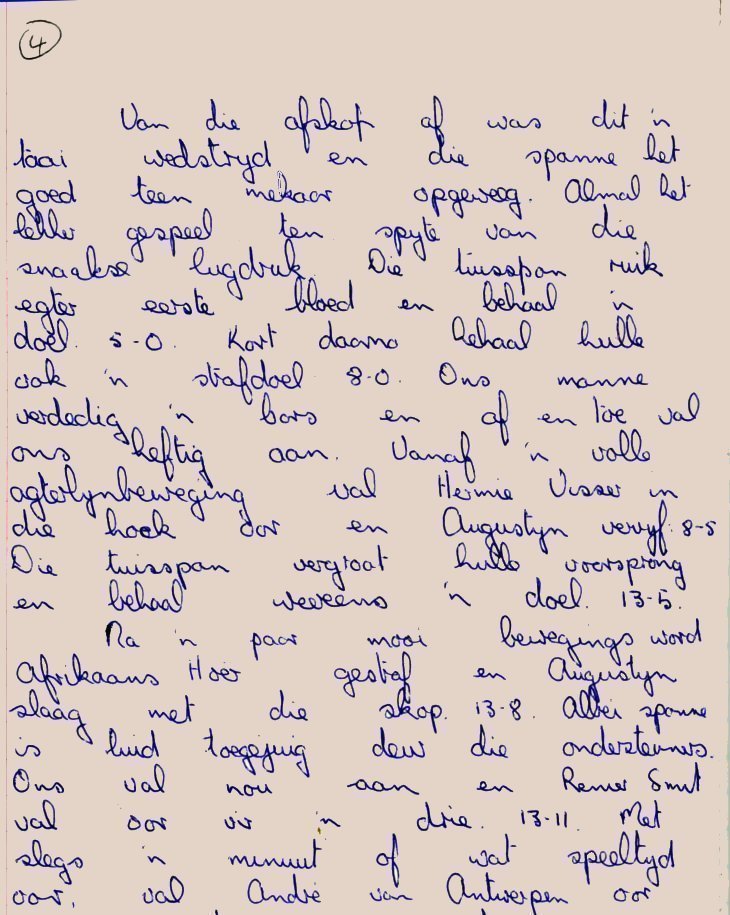 4
Van die afskop af was dit 'n
taai wedstryd en die spanne het
goed teen mekaar opgeweeg. Almal het
lekker gespeel ten spyte van die
snaakse lugdruk. Die tuisspan ruik
egter eerste bloed en behaal 'n
doel. 5-0. Kort daarna behaal hulle
ook 'n strafdoel 8-0. Ons manne
verdedig 'n bars en af en toe val
ons heftig aan. Vanaf 'n volle
agterlynbeweging val Hermie Visser in
die hoek oor en Augustyn vervyf. 8-5
Die tuisspan vergroot hulle voorsprong
en behaal weereens 'n doel. 13-5.
Na 'n paar mooi bewegings word
Afrikaans Hoër gestraf en Augustyn
slaag met die skop. 13-8. Albei spanne
is luid toegejuig deur die ondersteuners.
Ons val nou aan en Renier Smit
val oor vir 'n drie. 13-11. Met
slegs 'n minuut of wat speeltyd
oor, val André van Antwerpen oor